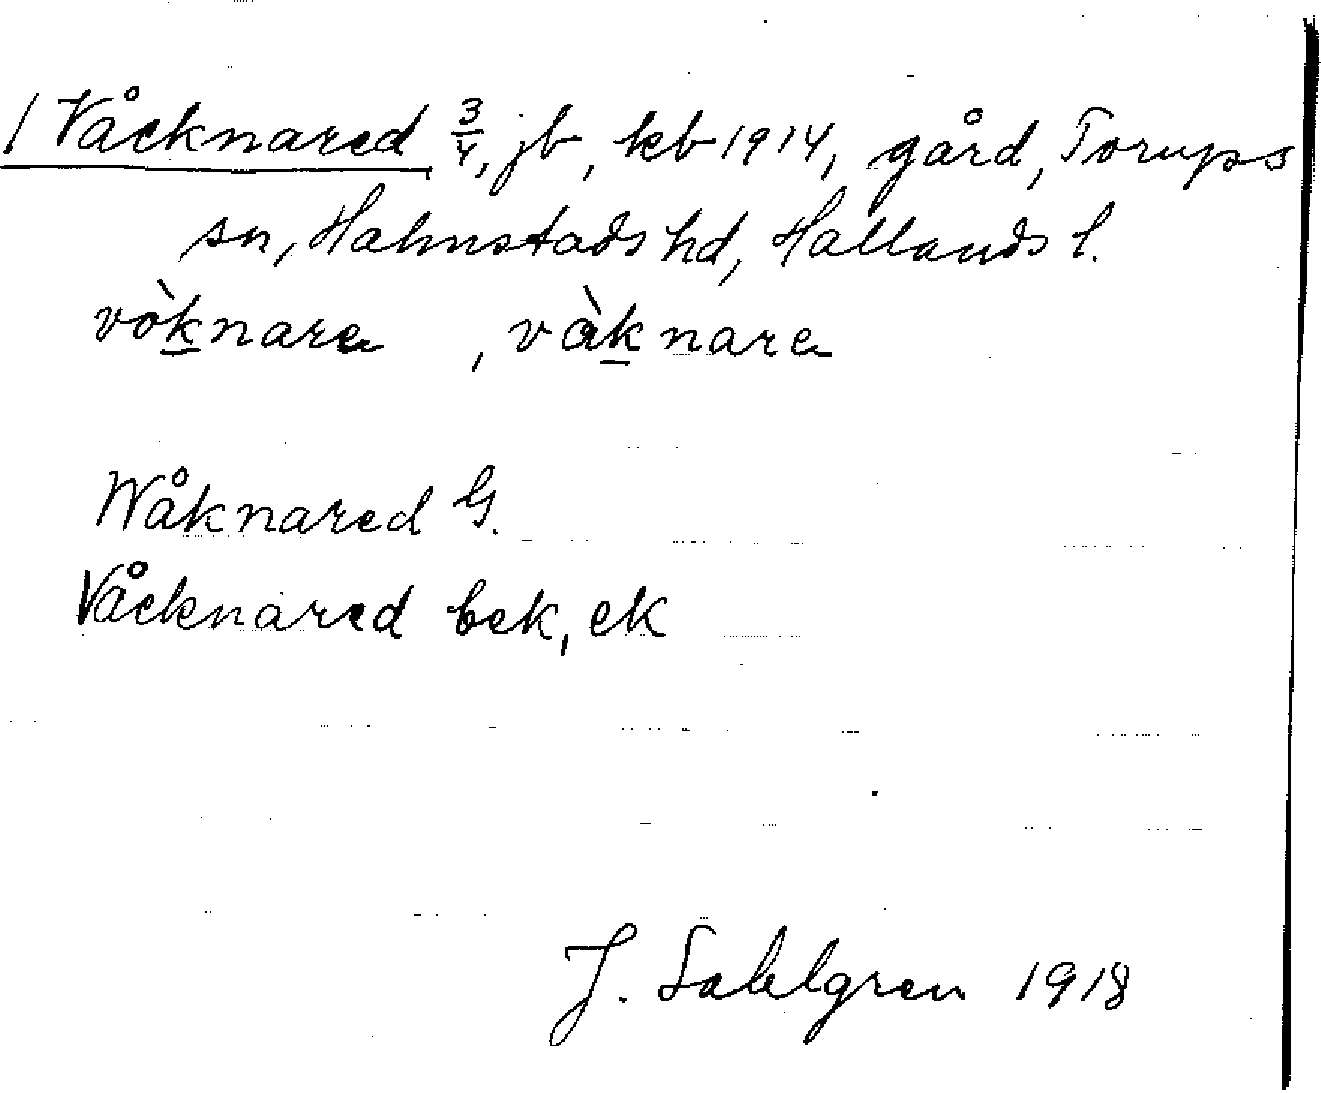 / Våcknared 3/4, jb, kb 1914, gård, Torups
sn, Halmstads hd, Hallands l.
vòknare, vàknare
Wåknared G.
Våcknared bek, ek
J. Sahlgren 1918